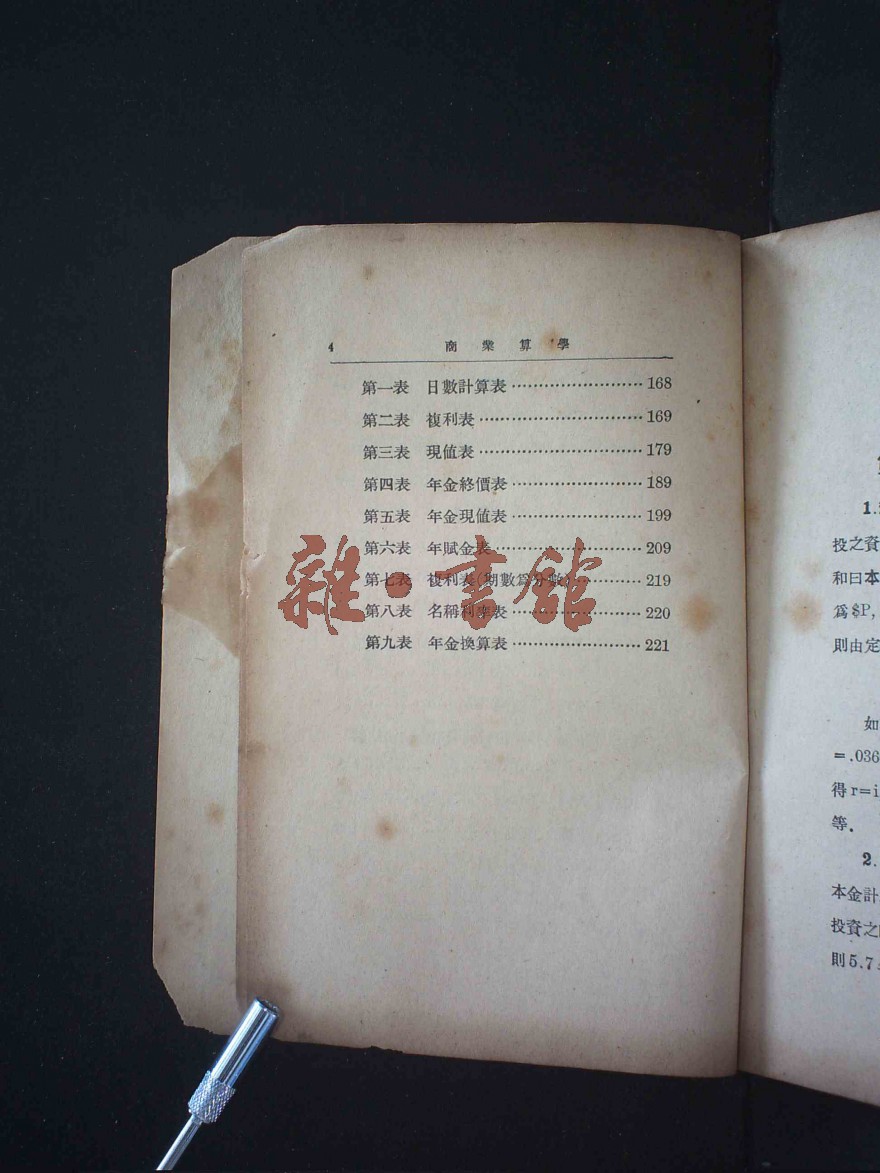 4 商業算學
第一表 日數計算表························168
第二表 複利表······························169
第三表 現值表······························179
第四表 年金終價表························189
第五表 年金現值表························199
第六表 年賦金表···························209
第七表 複利表(期數爲分數)············219
第八表 名稱利率表························220
第九表 年金換算表························221
雜·書館
1.
投之資
和曰本
爲$P,
則由定
如
=.036
得r=i
等.
2.
本金計
投資之
則5.7